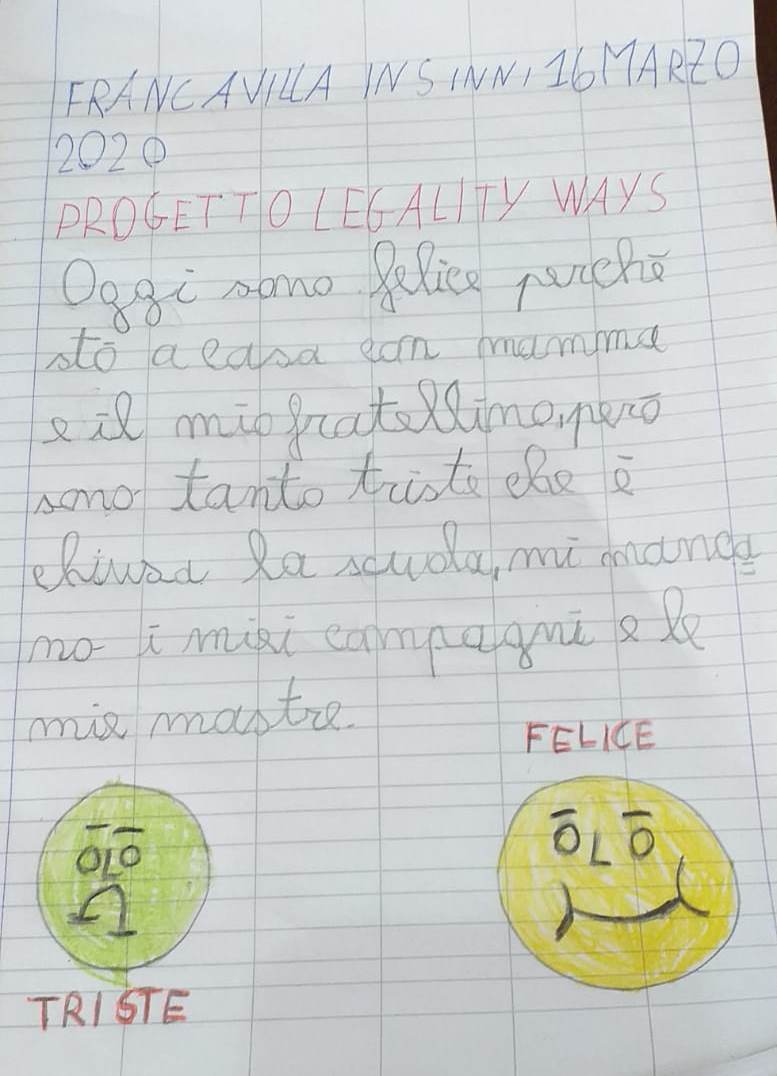 FRANCAVILLA IN SINNI, 16 MARZO
2020
PROGETTO LEGALITY WAYS
Oggi sono felice perchē
stō a casa con mamma
e il mio fratellino, perō
sono tanto triste che ē
chiusa la scuola, mi manca
no i miei compagni e le
mie mastre.
FELICE
TRISTE